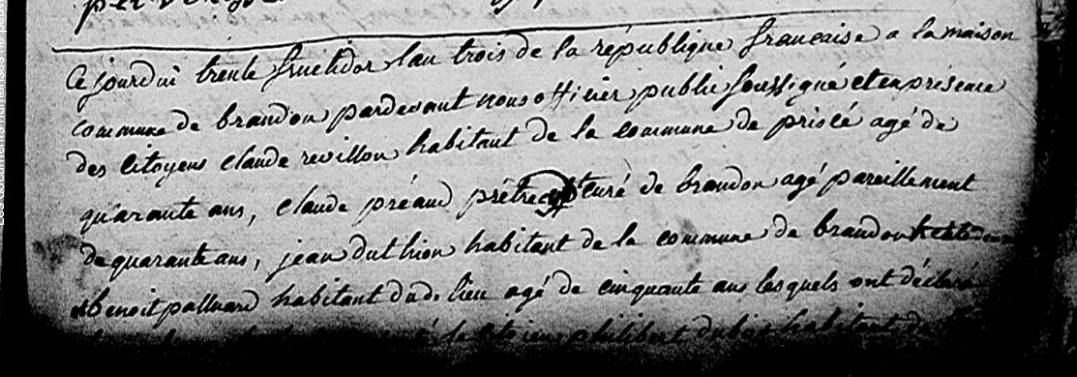 Ce jourdui trente fructidor lan trois de la république française a la maison
commune de brandon pardevant nous officier public soussigné et en présence
des citoyens claude revillon habitant de la commune de prissé agé de
quarante ans, claude préaud prêtre curé de brandon agé pareillement
de quarante ans, jean duthion habitant de la commune de brandon
benoit palluard habitant dud. lieu agé de cinquante ans lesquels ont déclaré
le citoien philibert habitant de